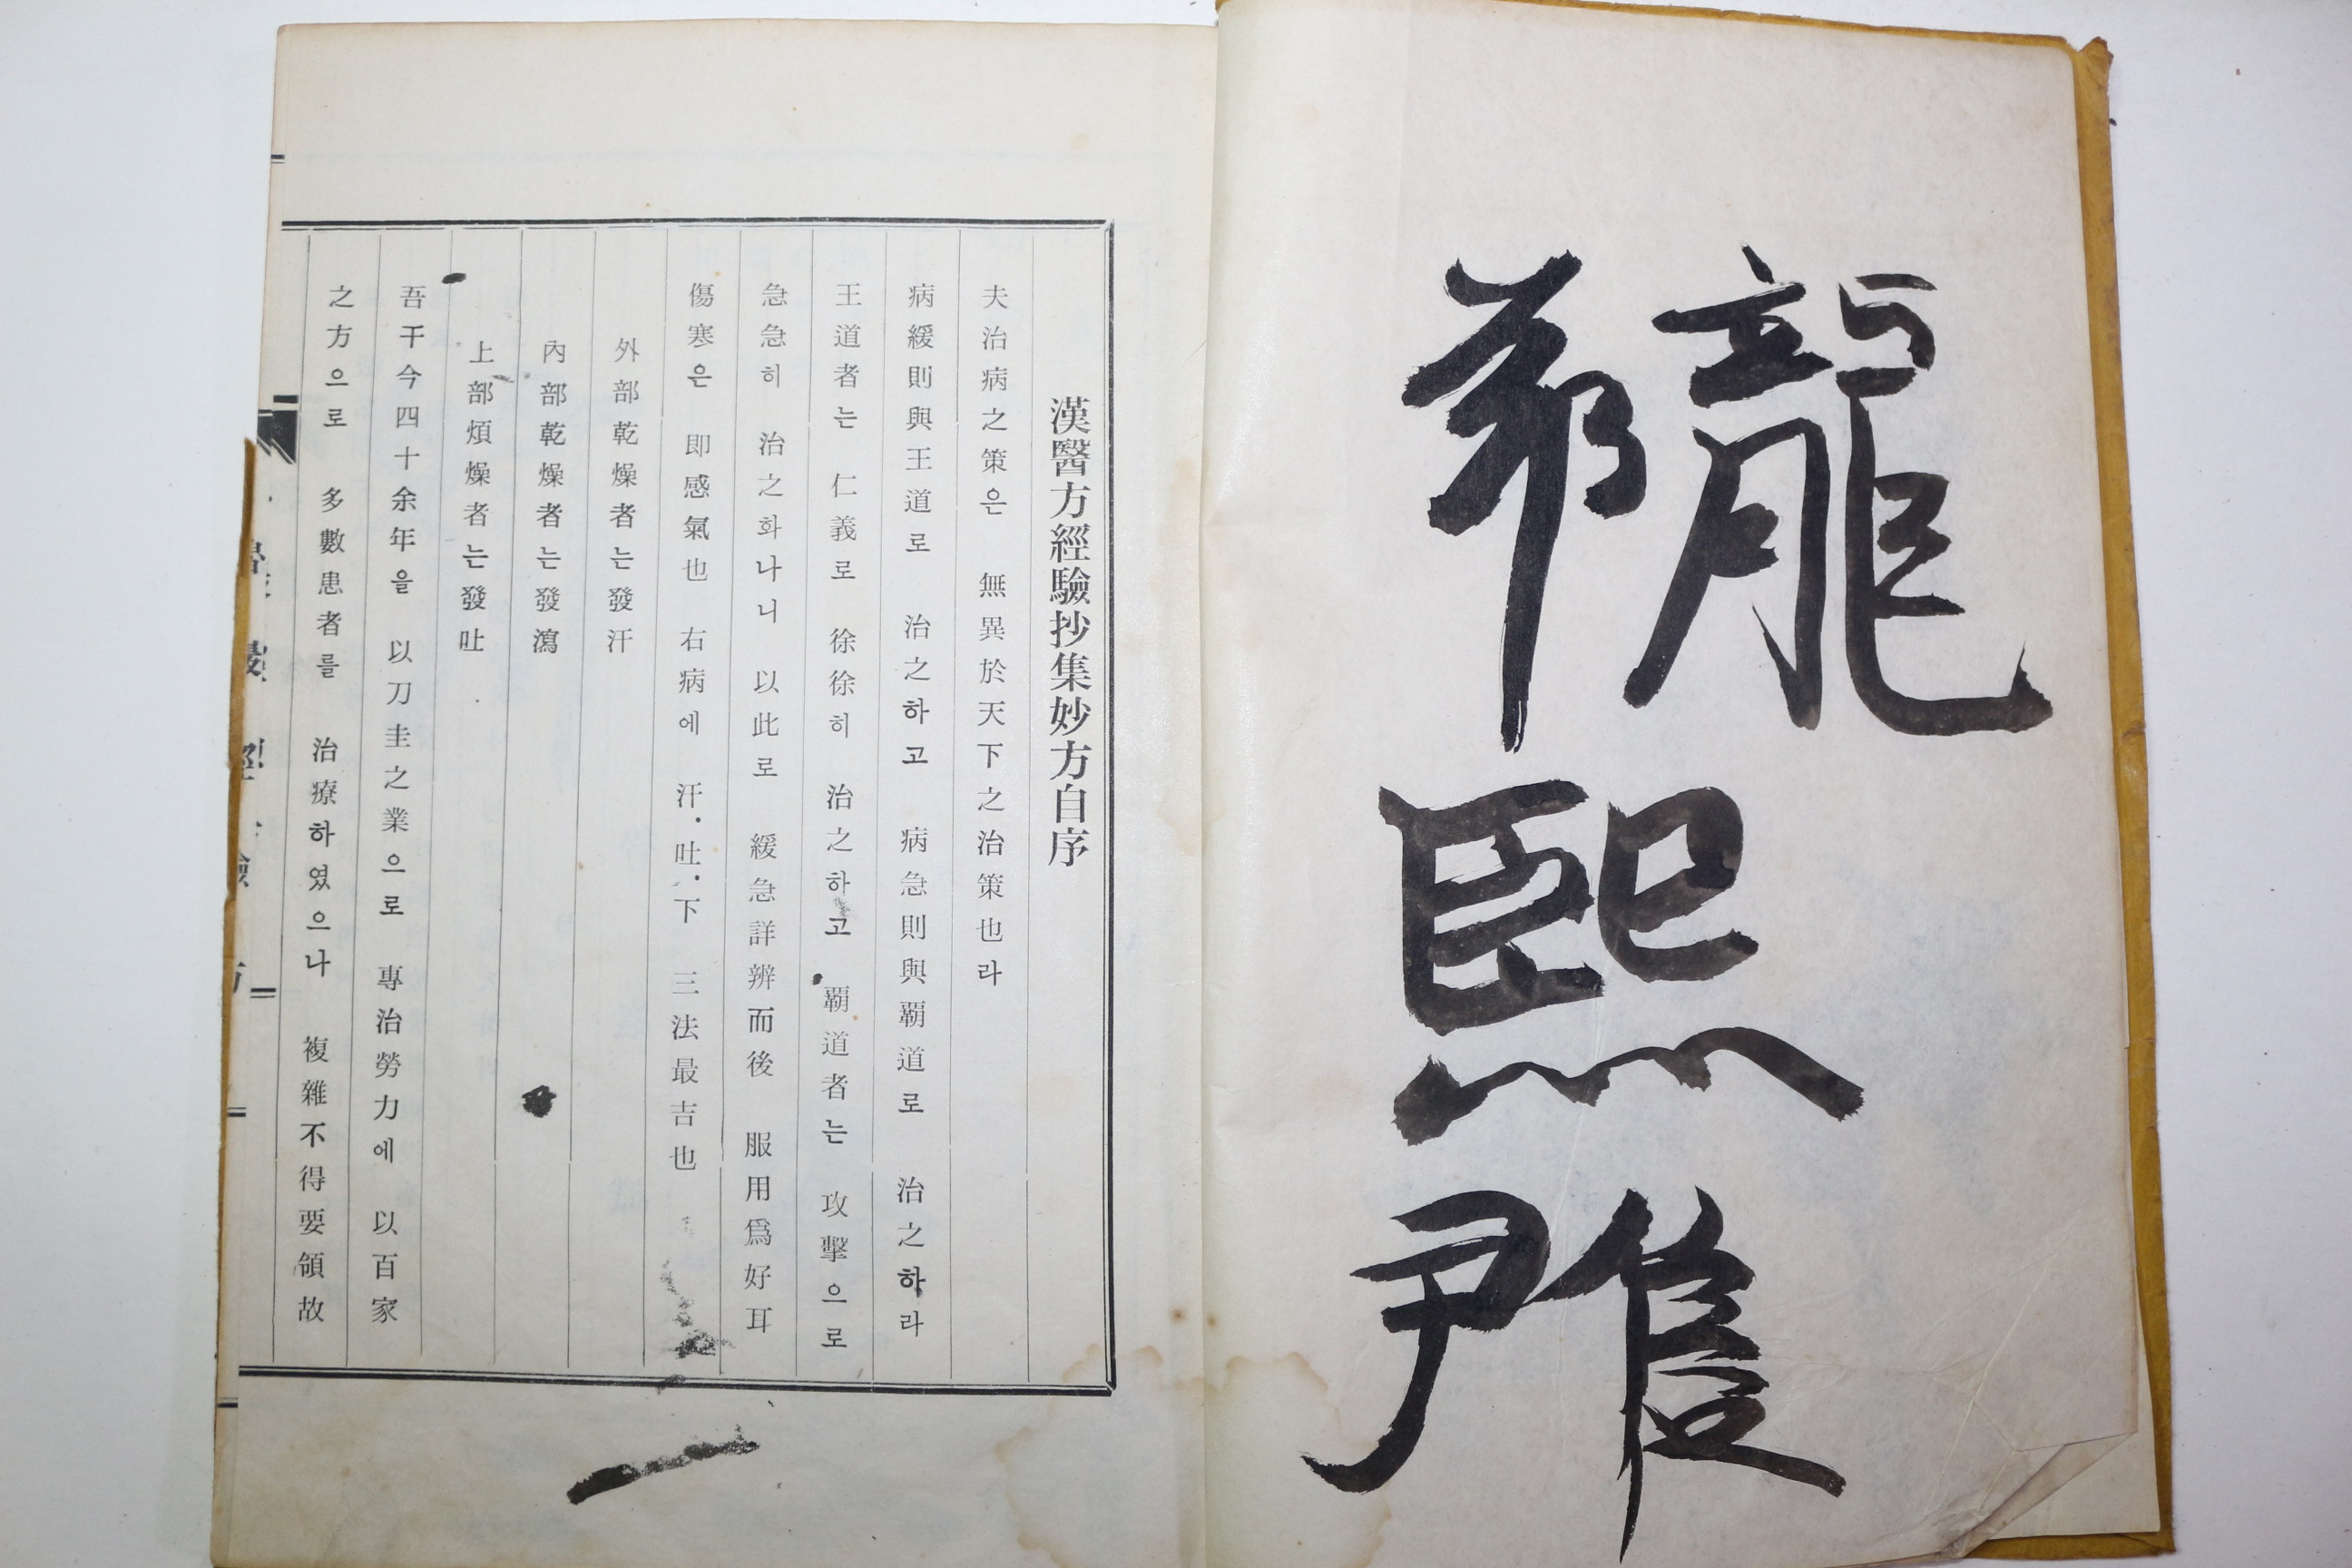 龍
熙
漢醫方經驗抄集妙方自序
夫治病之策은 無異於天下之治策也라
病緩則與王道로 治之하고 病急則與覇道로 治之하라
王道者는 仁義로 徐徐히 治之하고 覇道者는 攻擊으로
急急히 治之화나니 以此로 緩急詳辨而後 服用爲好耳
傷寒은 即感氣也 右病에 汗·吐·下 三法最吉也
外部乾燥者는發汗
內部乾燥者는發瀉
上部煩燥者는發吐
吾干今四十余年을 以刀圭之業으로 專治勞力에 以百家
之方으로 多數患者를 治療하였으나 複雜不得要領故